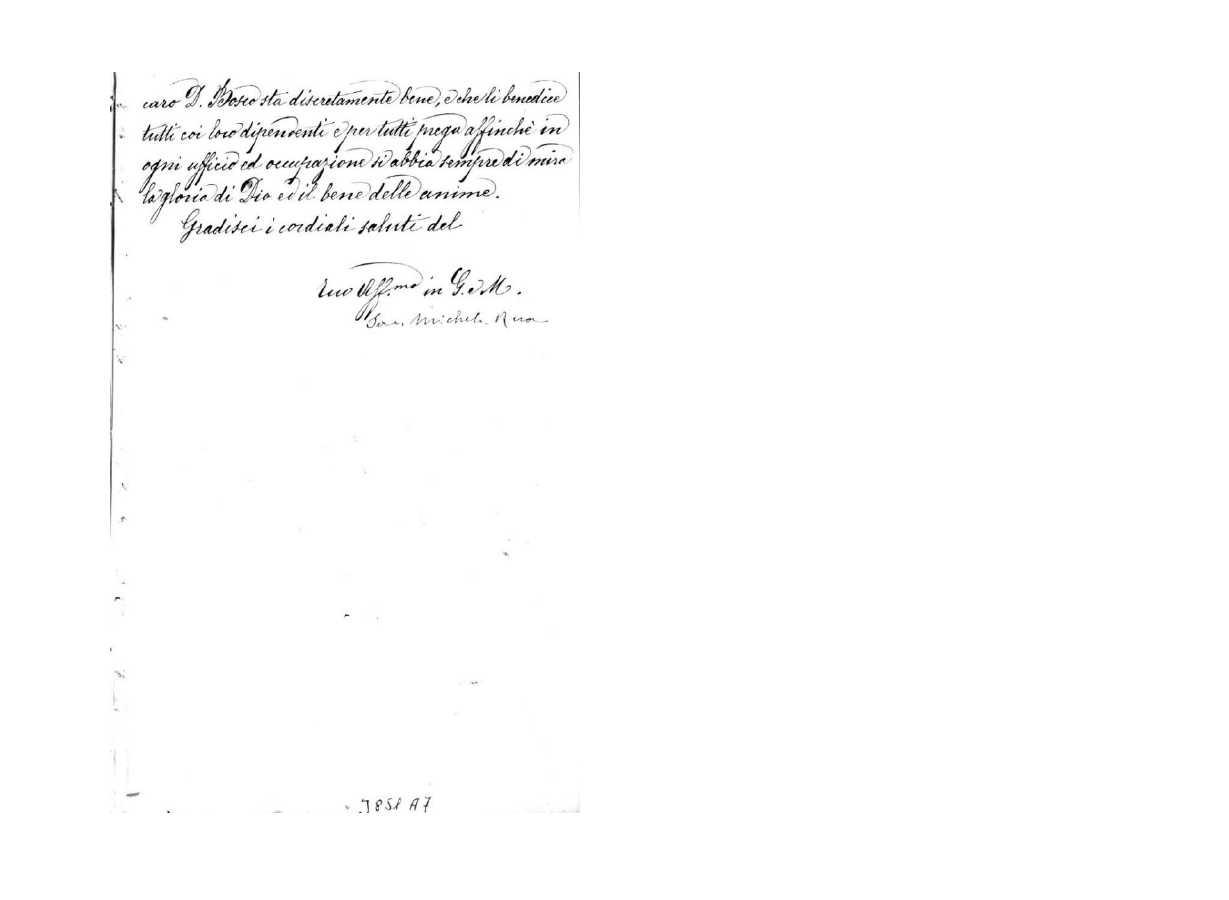 caro D. Bosco sta discretamente bene, e che li benedice
tutti coi loro dipendenti e per tutti prega affinchè in
ogni ufficio ed occupazione si abbia sempre di mira
la gloria di Dio ed il bene delle anime.
Gradisci i cordiali saluti del
Tuo Aff.mo in G. e M.
Sac. Michele Rua
3851 A7